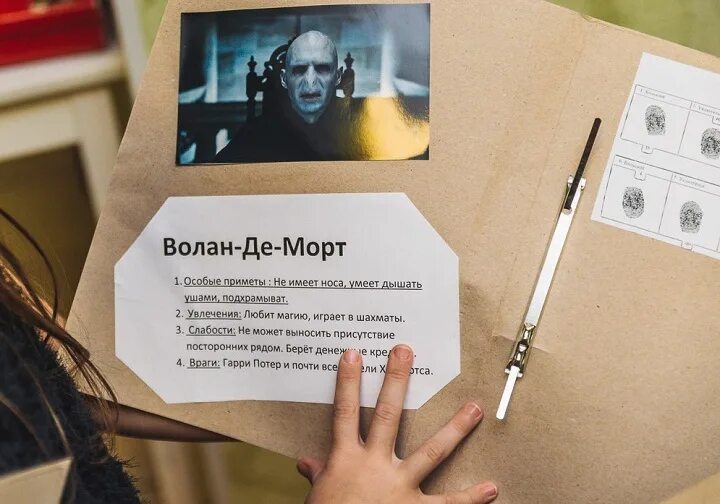 Волан-Де-Морт
1. Особые приметы : Не имеет носа, умеет дышать
ушами, подхрамыват.
2. Увлечения: Любит магию, играет в шахматы.
3. Слабости: Не может выносить присутствие
посторонних рядом. Берёт денежные
4. Враги: Гарри Потер и почти все